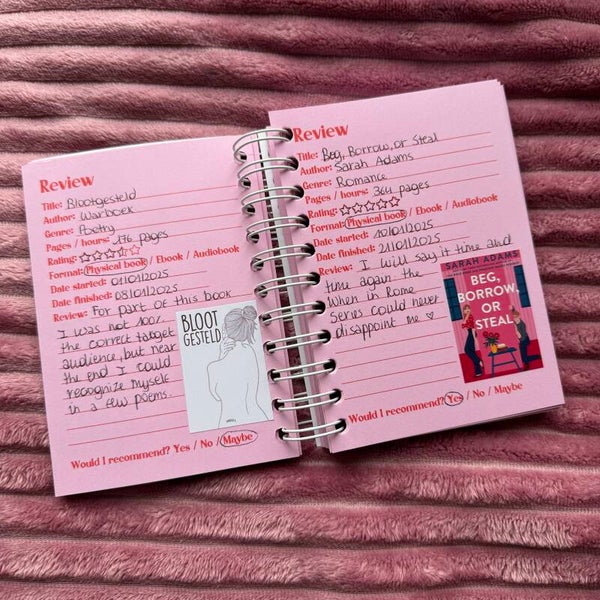 Review
Title: Blootgesteld
Author: Warboek
Genre: Poetry
Pages / hours: 176 pages
Rating:
Format: Physical book / Ebook / Audiobook
Date started: 01/01/2025
Date finished: 08/01/2025
Review: For part of this book
I was not 100%
the correct target
audience, but near
the end I could
recognize myself
in a few poems.
BLOOT
GESTELD
Would I recommend? Yes / No / Maybe
Review
Title: Beg, Borrow, or Steal
Author: Sarah Adams
Genre: Romance
Pages / hours: 364 pages
Rating:
Format: Physical book / Ebook / Audiobook
Date started: 10/01/2025
Date finished: 21/01/2025
Review: I will say it time and
time again the
When in Rome
series could never
disappoint me ♡
SARAH ADAMS
BEG,
BORROW,
OR
STEAL
Would I recommend? Yes / No / Maybe